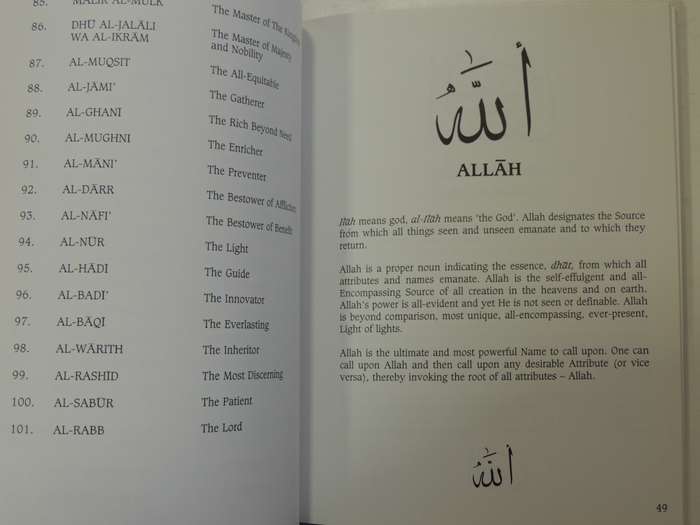 85. MĀLIK AL-MULK The Master of The Kingdom
86. DHŪ AL-JALĀLI The Master of Majesty
WA AL-IKRĀM and Nobility
87. AL-MUQSIT The All-Equitable
88. AL-JĀMI' The Gatherer
89. AL-GHANI The Rich Beyond Need
90. AL-MUGHNI The Enricher
91. AL-MĀNI' The Preventer
92. AL-DĀRR The Bestower of Affliction
93. AL-NĀFI' The Bestower of Benefit
94. AL-NŪR The Light
95. AL-HĀDI The Guide
96. AL-BADI' The Innovator
97. AL-BĀQI The Everlasting
98. AL-WĀRITH The Inheritor
99. AL-RASHID The Most Discerning
100. AL-SABŪR The Patient
101. AL-RABB The Lord
الله
ALLĀH
Ilāh means god, al-Ilāh means 'the God'. Allah designates the Source
from which all things seen and unseen emanate and to which they
return.
Allah is a proper noun indicating the essence, dhāt, from which all
attributes and names emanate. Allah is the self-effulgent and all-
Encompassing Source of all creation in the heavens and on earth.
Allah's power is all-evident and yet He is not seen or definable. Allah
is beyond comparison, most unique, all-encompassing, ever-present,
Light of lights.
Allah is the ultimate and most powerful Name to call upon. One can
call upon Allah and then call upon any desirable Attribute (or vice
versa), thereby invoking the root of all attributes – Allah.
الله
49